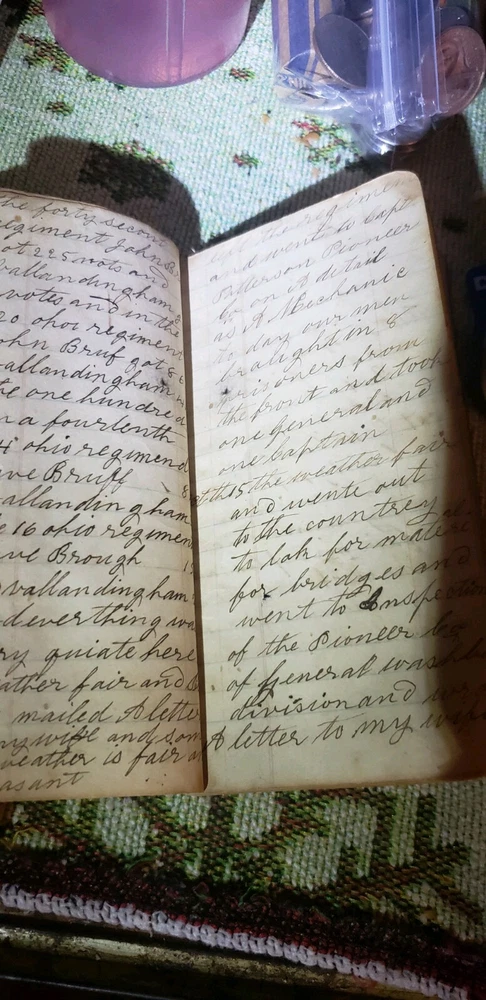 the forty second
regiment John
got 225 vots and
vallandingham
votes and in the
20 ohoi regiment
John Bruf got 8
vallandingham
the one hundred
n a fourtenth
4 ohio regimend
ave Bruff 8
vallandingham
e 16 ohio regimen
ave Brough
vallandingham
d everthing was
ry quiate here
ather fair and
mailed A letter
my wife and som
weather is fair a
asant
left the regimen
and went to Capt
Patterson Pioneer
Co on A detail
as A Mechanic
to day our men
braught in 8
prisoners from
the front and took
one general and
one Captain
oct th 15 the weather fair
and wente out
to the countrey
to lok for mater
for bridges and
went to Inspection
of the Pioneer Co
of General washb
division and
A letter to my wife